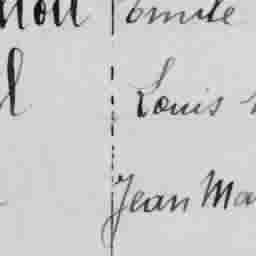 Emile
Louis
Jean Ma